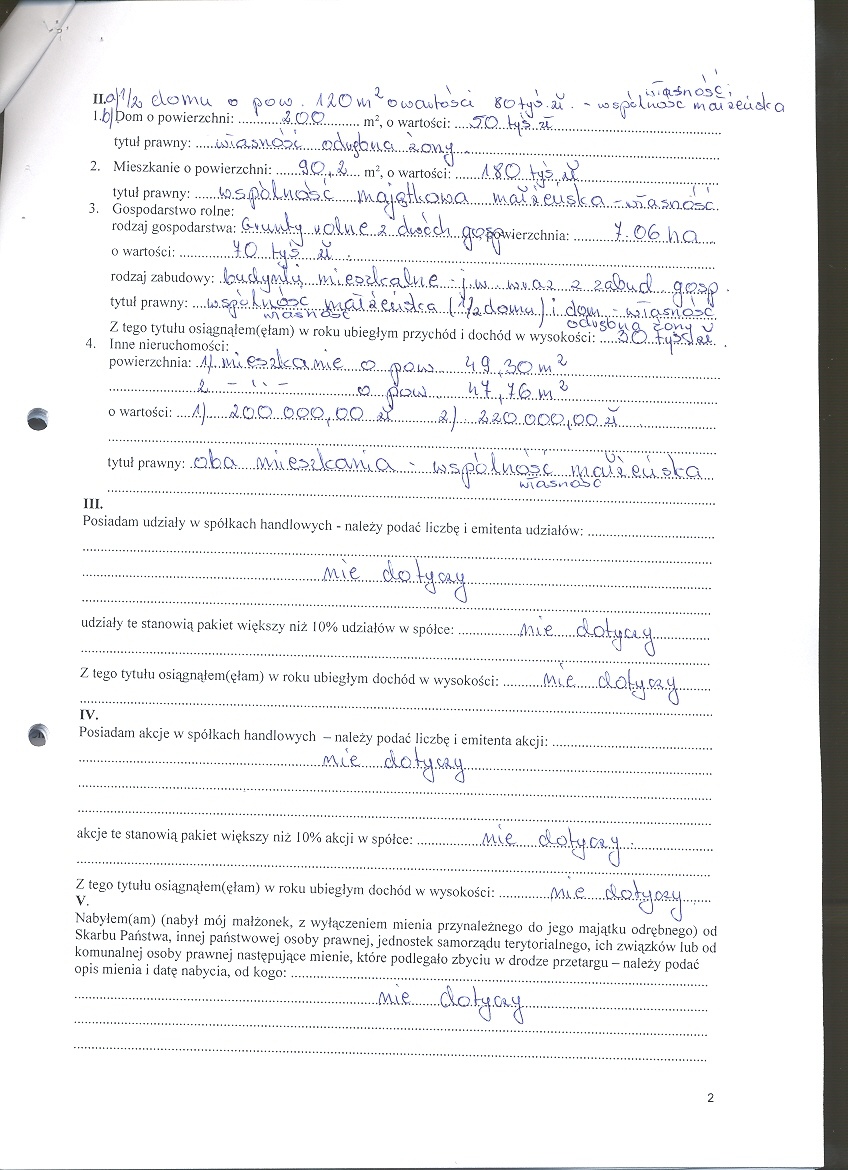 własność;
II.a/ 1/2 domu o pow. 120 m² o wartości 80 tyś. zł. - wspólność małżeńska
1.b/ Dom o powierzchni: 200 m², o wartości: 50 tyś. zł
tytuł prawny: własność odrębna żony
2. Mieszkanie o powierzchni: 90,2 m², o wartości: 180 tyś. zł
tytuł prawny: wspólność majątkowa małżeńska - własność
3. Gospodarstwo rolne:
rodzaj gospodarstwa: Grunty rolne z dwóch gosp powierzchnia: 7.06 ha
o wartości: 70 tyś zł.
rodzaj zabudowy: budynki mieszkalne j.w. wraz z zabud. gosp.
tytuł prawny: wspólność małżeńska (1/2 domu) i dom - własność
własność odrębna żony
Z tego tytułu osiągnąłem(ęłam) w roku ubiegłym przychód i dochód w wysokości: 30 tyś zł.
4. Inne nieruchomości:
powierzchnia: 1/ mieszkanie o pow 49,30 m²
2 - 11 - o pow. 47,76 m²
o wartości: 1/ 200 000,00 zł 2/ 220.000,00 zł
tytuł prawny: oba mieszkania - wspólność małżeńska
własność
III.
Posiadam udziały w spółkach handlowych - należy podać liczbę i emitenta udziałów:
nie dotyczy
udziały te stanowią pakiet większy niż 10% udziałów w spółce: nie dotyczy
Z tego tytułu osiągnąłem(ęłam) w roku ubiegłym dochód w wysokości: nie dotyczy
IV.
Posiadam akcje w spółkach handlowych – należy podać liczbę i emitenta akcji:
nie dotyczy
akcje te stanowią pakiet większy niż 10% akcji w spółce: nie dotyczy
Z tego tytułu osiągnąłem(ęłam) w roku ubiegłym dochód w wysokości: nie dotyczy
V.
Nabyłem(am) (nabył mój małżonek, z wyłączeniem mienia przynależnego do jego majątku odrębnego) od
Skarbu Państwa, innej państwowej osoby prawnej, jednostek samorządu terytorialnego, ich związków lub od
komunalnej osoby prawnej następujące mienie, które podlegało zbyciu w drodze przetargu – należy podać
opis mienia i datę nabycia, od kogo:
nie dotyczy
2